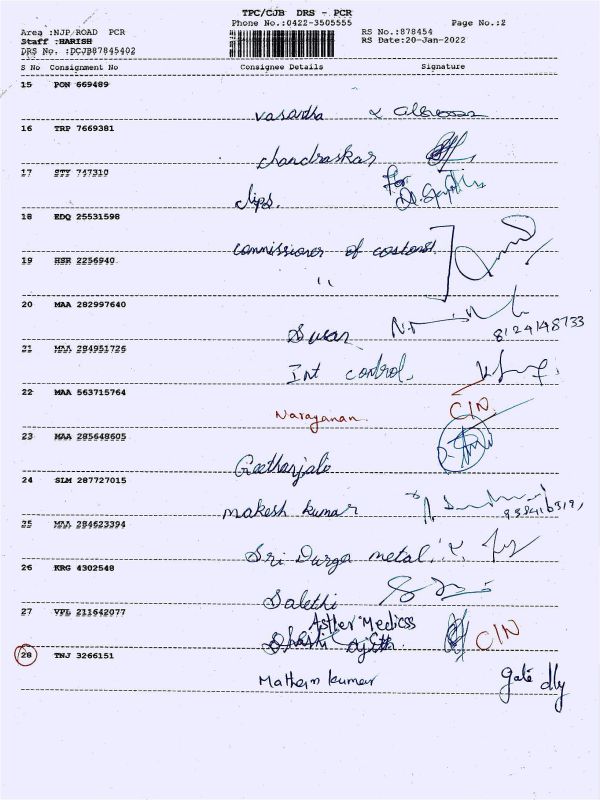 TPC/CJB DRS - PCR
Phone No.:0422-3505555 Page No.:2
Area :NJP ROAD PCR RS No.:878454
Staff :HARISH RS Date:20-Jan-2022
DRS No. :DCJB87845402
S No Consignment No Consignee Details Signature
15 PON 669489
vasantha
16 TRP 7669381
chandraskar
17 STY 747310
clips. for
18 EDQ 25531598
Commissioner of costoms
19 HSR 2256940
"
20 MAA 282997640
Susan 8124148733
21 MAA 284951726
Int control.
22 MAA 563715764
Narayanan. CIN
23 MAA 285648605
Geethanjali
24 SLM 287727015
makesh kumar
25 MAA 284623394
Sri Durga metal
26 KRG 4302548
Salethi
27 VPL 211642077
Asther Medicss
CIN
28 TNJ 3266151
Mathan kumar gate dly